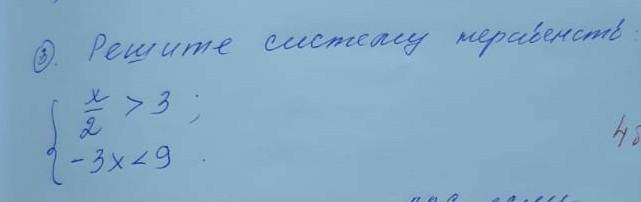 ③. Решите систему неравенств:
{ x/2 > 3 ;
-3x < 9 .
4б